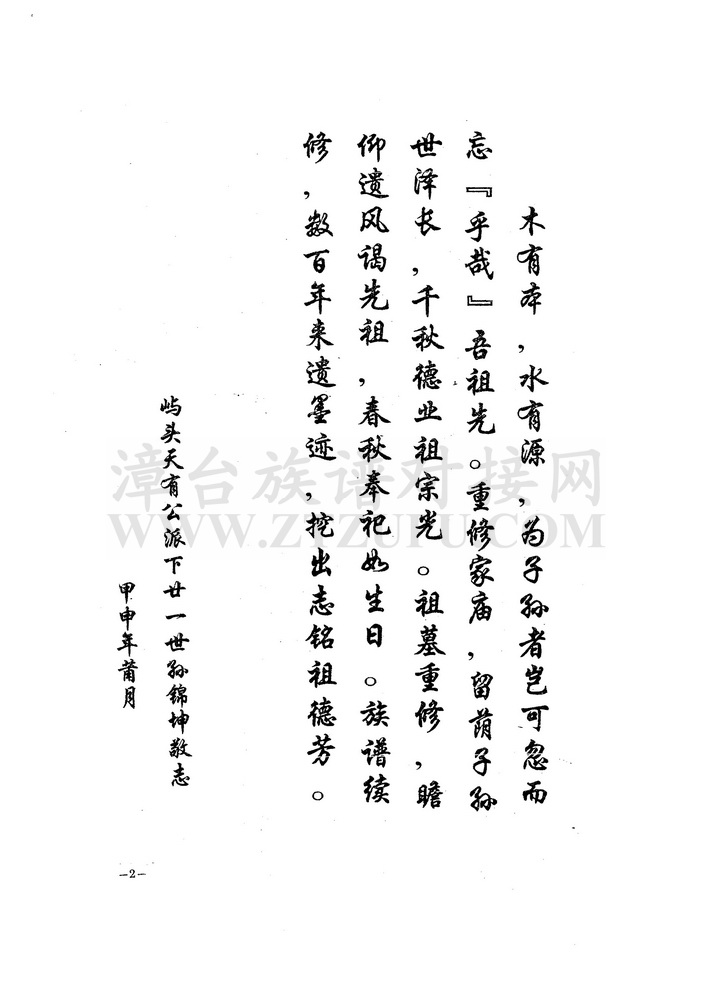 木有本，水有源，为子孙者岂可忽而
忘『乎哉』吾祖先。重修家庙，留荫子孙
世泽长，千秋德业祖宗光。祖墓重修，瞻
仰遗风谒先祖，春秋奉祀如生日。族谱续
修，数百年来遗墨迹，挖出志铭祖德芳。
屿头天有公派下廿一世孙锦坤敬志
甲申年莆月
漳台族谱对接网
WWW.ZTZUPU.COM
-2-